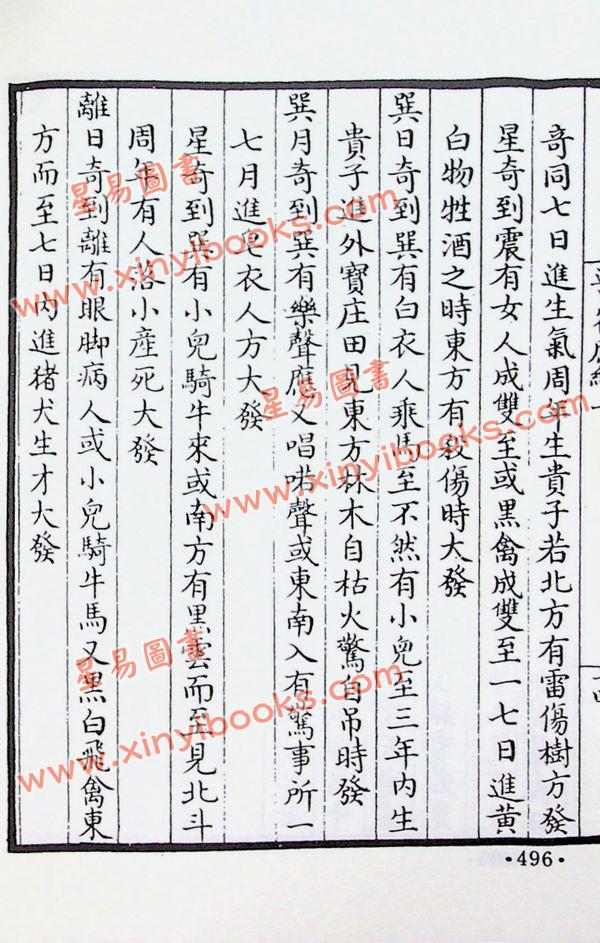 奇同七日進生氣周年生貴子若北方有雷傷樹方發
星奇到震有女人成雙至或黑禽成雙至一七日進黃
白物牲酒之時東方有殺傷時大發
巽日奇到巽有白衣人乘馬至不然有小兒至三年內生
貴子進外寶庄田見東方林木自枯火驚自吊時發
巽月奇到巽有樂聲應又唱喏聲或東南入有驚事所一
七月進皂衣人方大發
星奇到巽有小兒騎牛來或南方有黑雲而至見北斗
周年有人落小產死大發
離日奇到離有眼脚病人或小兒騎牛馬又黑白飛禽東
方而至七日內進猪犬生才大發
·496·
星易圖書
www.xinyibooks.com
星易圖書
www.xinyibooks.com
星易圖書
www.xinyibooks.com